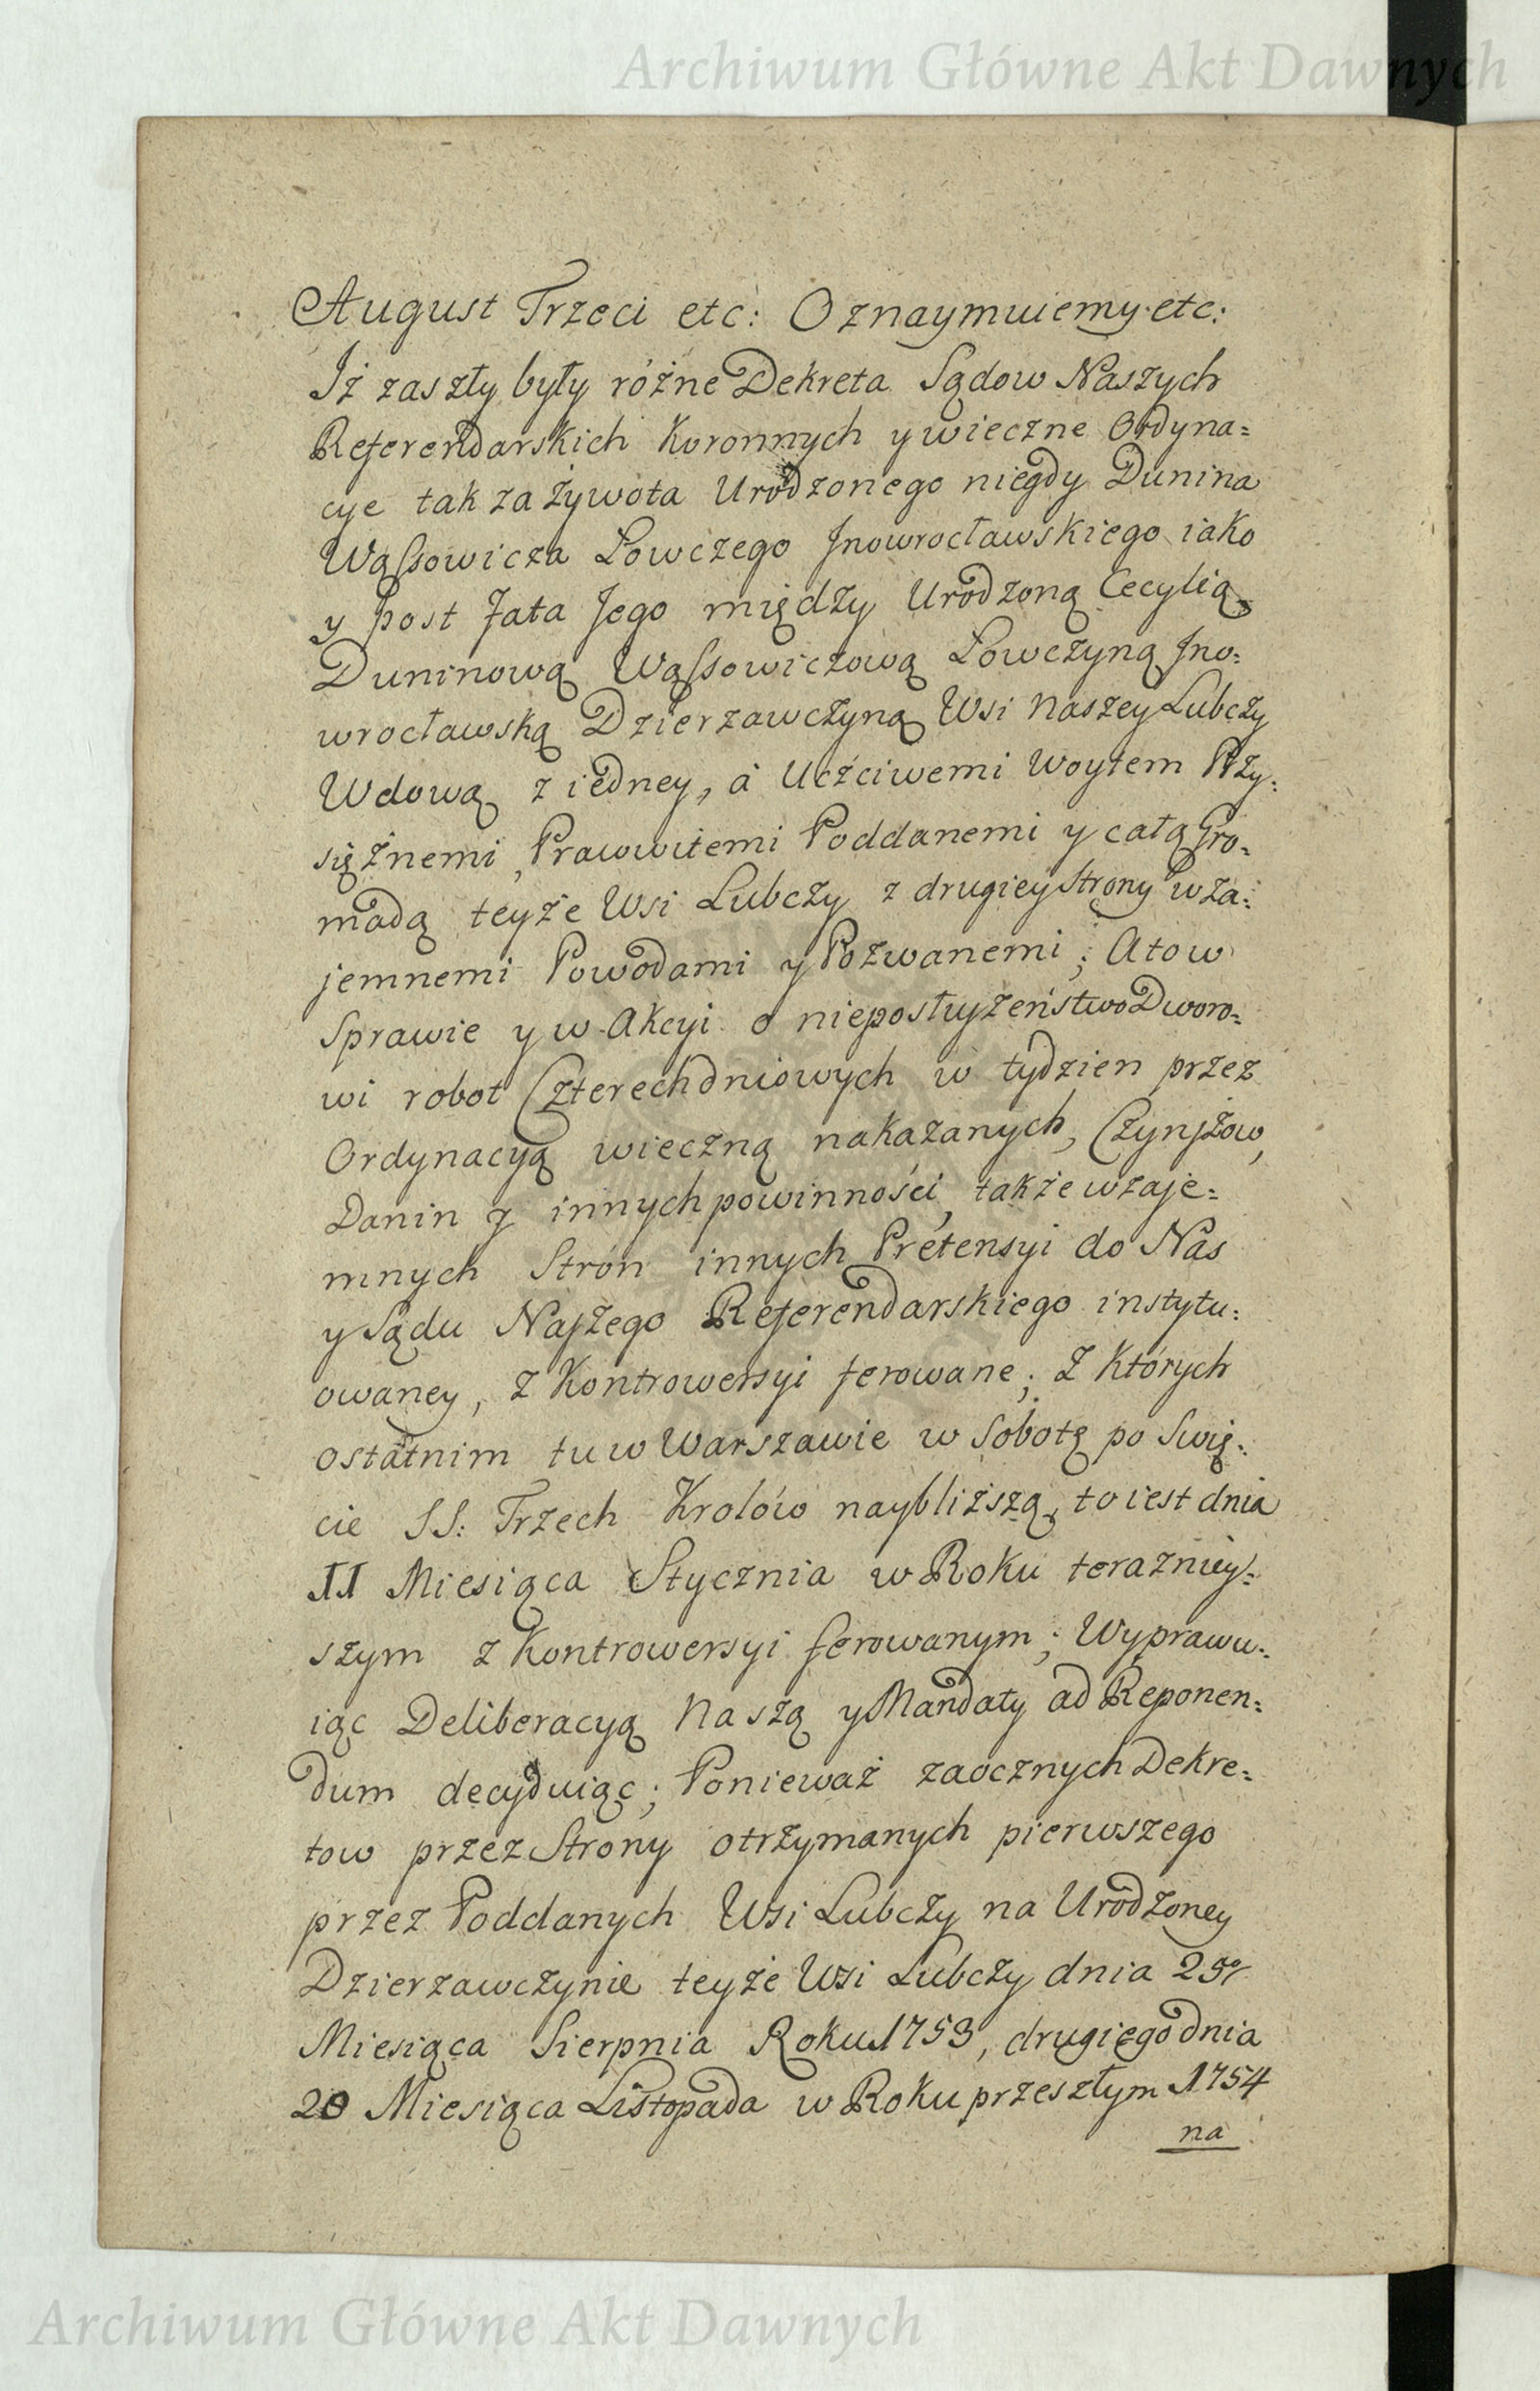 Archiwum Główne Akt Dawnych
August Trzeci etc: Oznaymuiemy etc:
Iż zaszły były różne Dekreta Sądow Naszych
Referendarskich Koronnych y wieczne Ordyna=
cye tak za żywota Urodzonego niegdy Dunina
Wąssowicza Łowczego Jnowrocławskiego iako
y post fata Jego między Urodzoną Cecylią
Duninową Wąssowiczową Łowczyną Jno=
wrocławską Dzierzawczyną Wsi Naszey Lubczy
Wdową z iedney, á Uczciwemi Woytem Przy=
siężnemi, Prawwitemi Poddanemi y całą Gro=
madą teyże Wsi Lubczy z drugiey Strony wza=
jemnemi Powodami y Pozwanemi; A to w
Sprawie y w Akcyi o nieposłużeństwo Dworo=
wi robot Czterechdniowych w tydzien przez
Ordynacyą wieczną nakazanych, Czynszow,
Danin y innych powinności, także wzaje=
mnych Strón innych Pretensyi do Nas
y Sądu Naszego Referendarskiego instytu=
owaney, z Kontrowersyi ferowane; Z Których
ostatnim tu w Warszawie w Sobotę po Swię=
cie SS: Trzech Krolów naybliższą, to iest dnia
11 Miesiąca Stycznia w Roku terazniey=
szym z Kontrowersyi ferowanym; Wyprawu=
iąc Deliberacyą Naszą y Mandaty ad Reponen=
dum decyduiąc; Ponieważ zaocznych Dekre=
tow przez Strony otrzymanych pierwszego
przez Poddanych Wsi Lubczy na Urodzoney
Dzierzawczynie teyże Wsi Lubczy dnia
Miesiąca Sierpnia Roku 1753, drugiego dnia
20 Miesiąca Listopada w Roku przeszłym 1754
na
Archiwum Główne Akt Dawnych